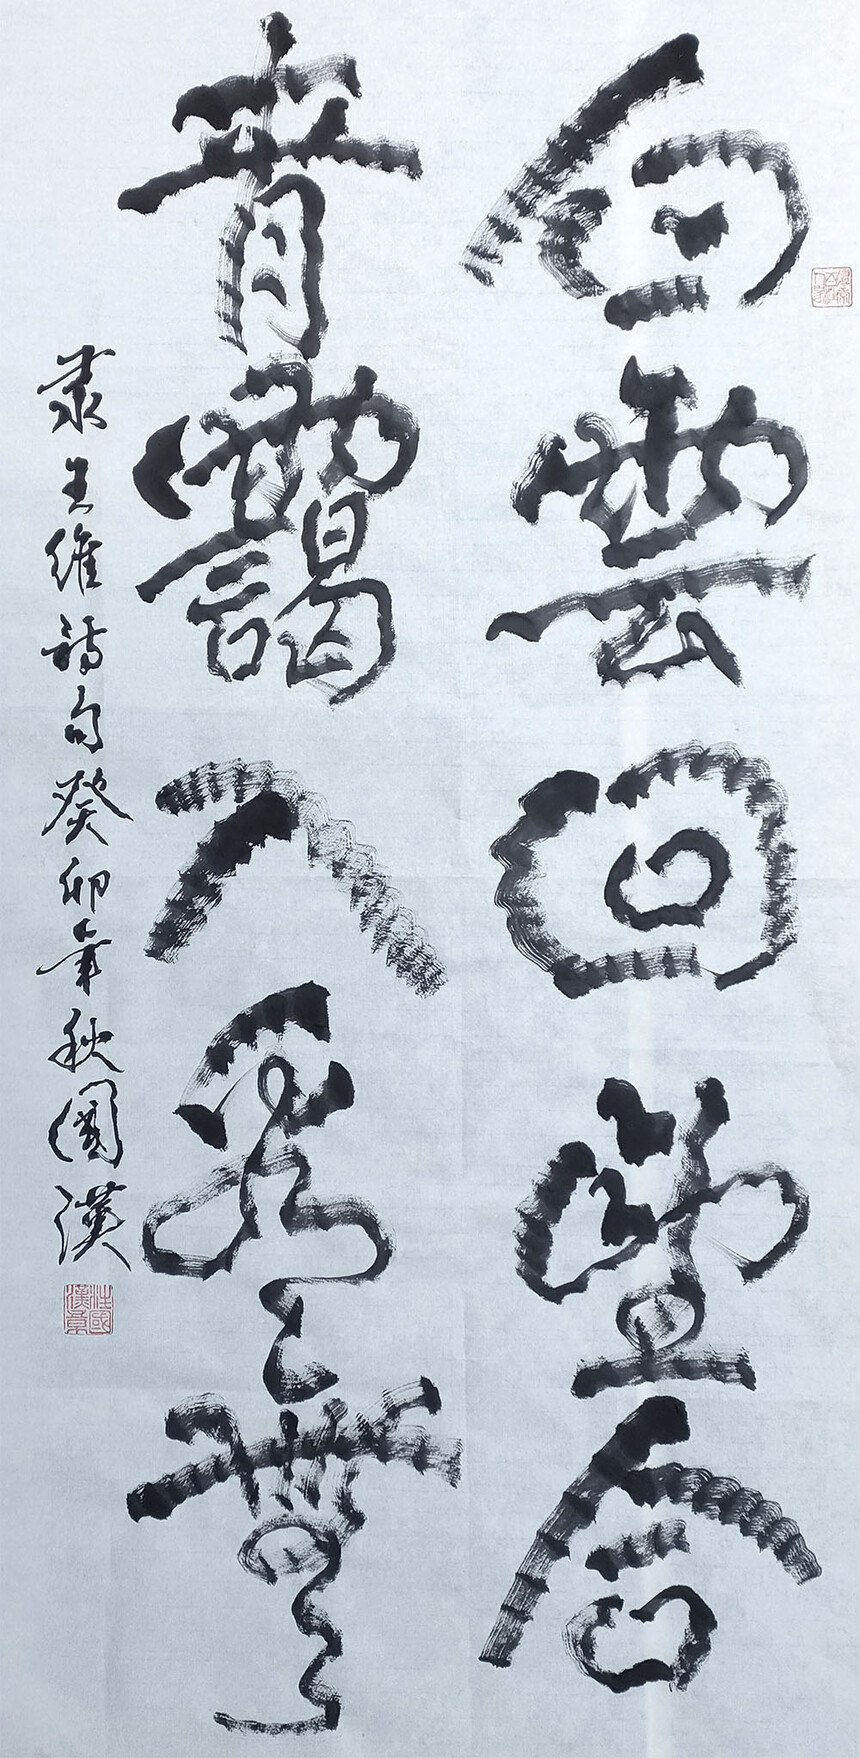 白雲回望合
青靄入看無
录王維詩句癸卯年秋國漢
汪國漢章